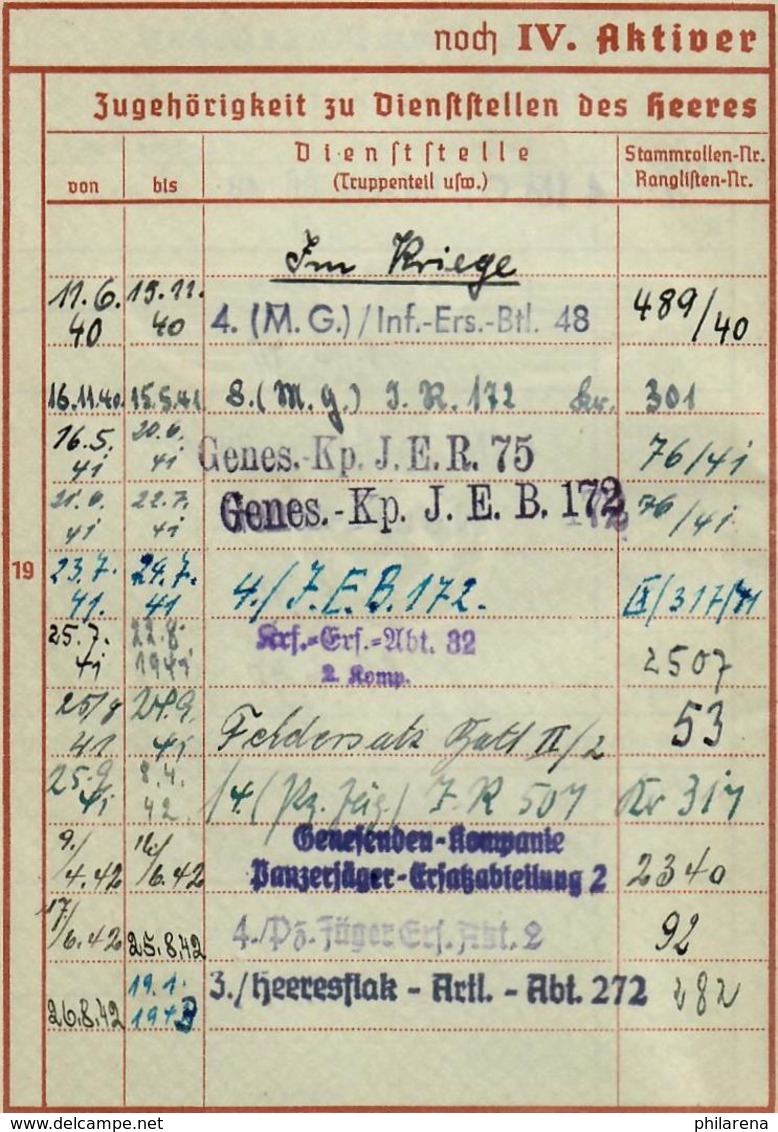 noch IV. Aktiver
Zugehörigkeit zu Dienststellen des Heeres
von bis Dienststelle (Truppenteil usw.) Stammrollen-Nr. Ranglisten-Nr.
Im Kriege
11.6. 40 15.11. 40 4. (M. G.) / Inf.-Ers.-Btl. 48 489/40
16.11.40 15.5.41 8. (M. G.) J. R. 172 Kr. 301
16.5. 41 20.6. 41 Genes.-Kp. J. E. R. 75 76/41
21.6. 41 22.7. 41 Genes.-Kp. J. E. B. 172 76/41
19
23.7. 41. 24.7. 41 4./J.E.B. 172. 317/41
25.7. 41 22.8. 1941 Krf.-Ers.-Abt. 32 2507
2. Komp.
25/8 41 24.9. 41 Feldersatz Batl II/2 53
25.9 41 8.4. 42. 14. (Pz. Jäg.) J. R 507 Kr 317
9./4.42 16./6.42 Genesenden-Kompanie
Panzerjäger-Ersatzabteilung 2 2340
17/6.42 25.8.42 4./Pz.-Jäger Ers. Abt. 2 92
26.8.42 19.1. 1943 3./Heeresflak - Artl. - Abt. 272 282
www.oldthing.de
philarena